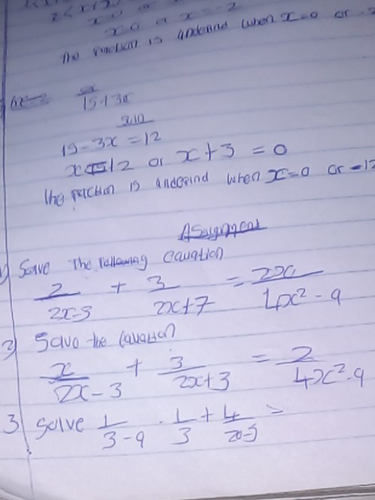 x=0 or x=-2
The fraction is undefind when x=0 or -2
15+3x
15-3x=12
x 12 or x+3 = 0
The fraction is undefind when x=0 or -12
Assignment
1) Solve The following Equation
2/2x-3 + 3/2x+7 = 2x/4x²-9
2) Solve the Equation
x/2x-3 + 3/2x+3 = 2/4x²-9
3 Solve 1/3-9 . 1/3 + 4/ =